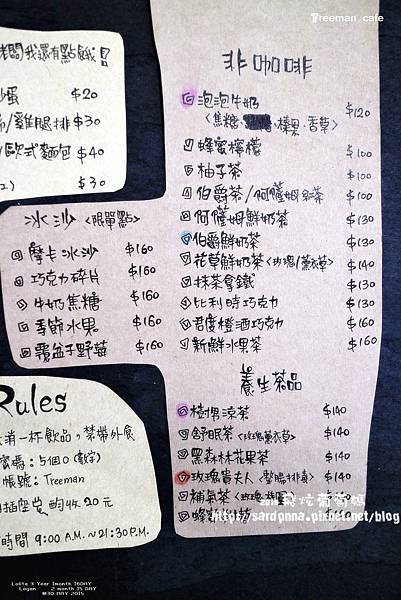 Treeman cafe
老闆我還有點餓!
沙蛋 $20
/雞腿排 $30
/歐式麵包 $40
$30
冰沙<限單點>
摩卡冰沙 $160
巧克力碎片 $160
牛奶焦糖 $160
季節水果 $160
覆盆子野莓 $160
Rules
消一杯飲品,禁帶外食
密碼:5個0(數字)
帳號:Treeman
插座 酌收20元
時間 9:00 A.M.~21:30 P.M.
非咖啡
泡泡牛奶 $120
<焦糖、榛果、香草>
蜂蜜檸檬 $100
柚子茶 $100
伯爵茶/阿薩姆紅茶 $100
阿薩姆鮮奶茶 $130
伯爵鮮奶茶 $130
花草鮮奶茶<玫瑰/薰衣草> $140
抹茶拿鐵 $130
比利時巧克力 $130
君度橙酒巧克力 $160
新鮮水果茶 $160
養生茶品
涼茶 $140
舒眠茶<玫瑰薰衣草> $140
黑森林花果茶 $140
玫瑰貴夫人<整腸排毒> $140
補氣茶 $140
$140
http://sardonna.pixnet.net/blog
Lolita 3 Year 1month 16DAY
Logan 2 month 15 DAY
@30 MAY 2015